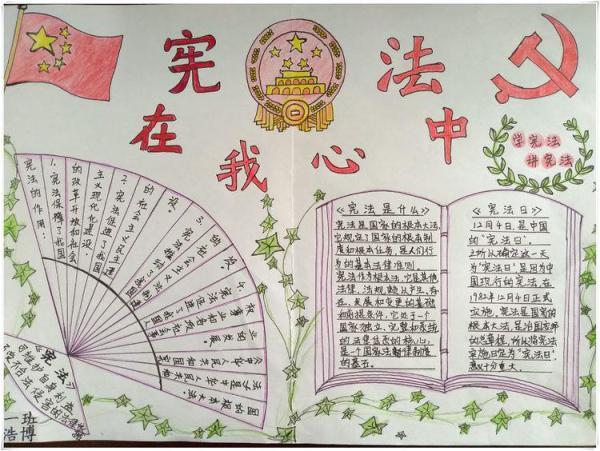 宪法
在我心中
学宪法
讲宪法
宪法的作用：
1. 宪法保障了我国
的改革开放和社会
主义现代化建设；
2. 宪法促进了我国
的社会主义民主建
设；
3. 宪法推动了我国
的社会主义法制
建设；
4. 宪法促进了我国人
权事业和各项社会事
业的发展。
《中华人民共和国宪
法》是中华人民共和
国的根本大法
《宪法》
《宪法是什么》
宪法是国家的根本大法，
它规定了国家的根本制
度和根本任务，是人们行
为的基本法律准则。
宪法作为根本法，它是其他
法律、法规赖以产生、存
在、发展和变更的基础
和前提条件，它处于一个
国家独立、完整和系统
的法律体系的核心，
是一个国家法制律制度
的基石。
《宪法日》
12月4日，是中国
的“宪法日”。
之所以确定这一天
为“宪法日”，是因为中
国现行的宪法，在
1982年12月4日正式
实施，宪法是国家的
根本大法，是治国安邦
的总章程，所以将宪法
实施日定为“宪法日”，
意义十分重大。
一班
浩博